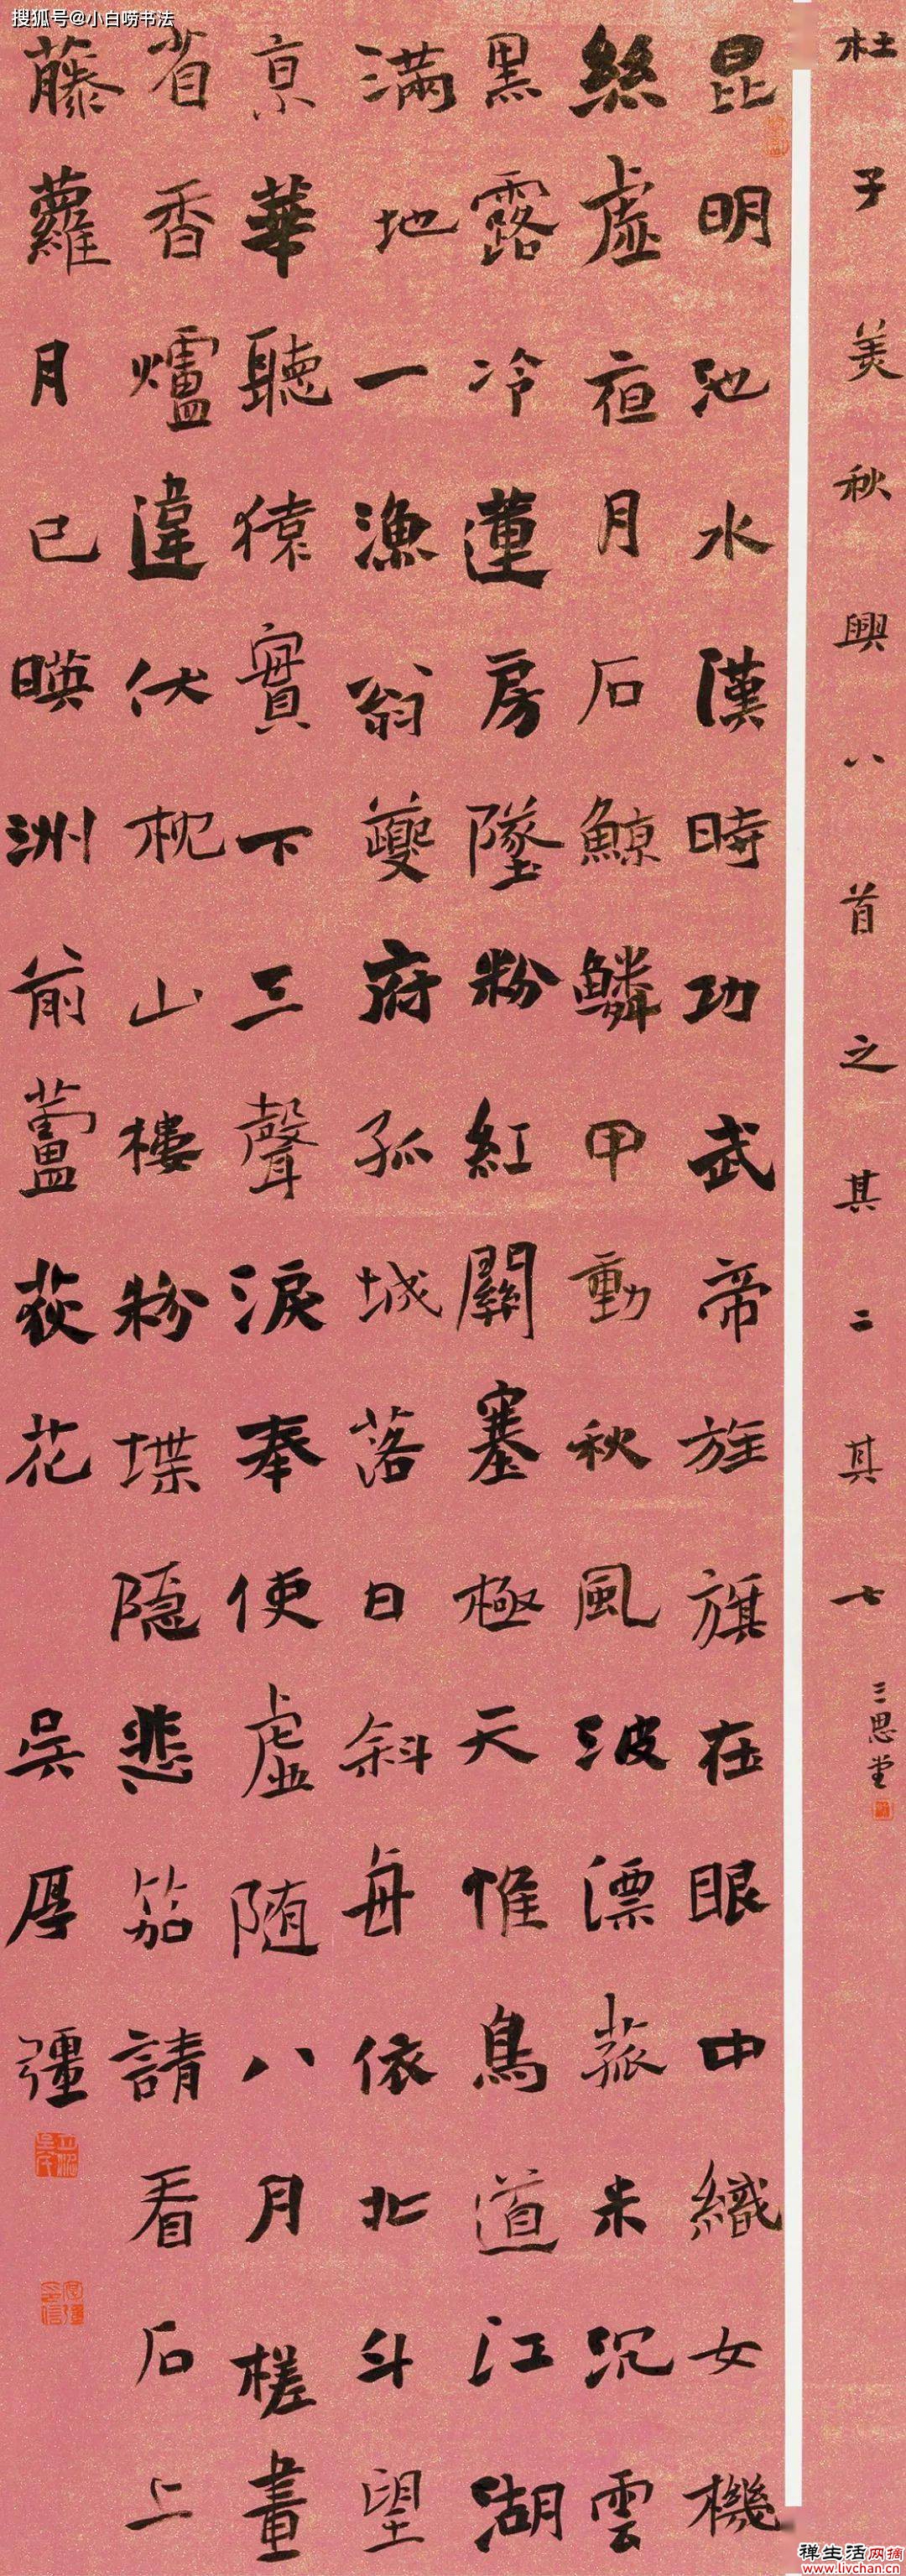 搜狐号@小白唠书法
杜子美秋興八首之其二其七
三思堂
昆明池水漢時功武帝旌旗在眼中織女機
絲虛夜月石鯨鱗甲動秋風波漂菰米沉雲
黑露冷蓮房墜粉紅關塞極天惟鳥道江湖
滿地一漁翁夔府孤城落日斜每依北斗望
京華聽猿實下三聲淚奉使虛随八月槎畫
省香爐違伏枕山樓粉堞隱悲笳請看石上
藤蘿月已暎洲前蘆荻花 吳厚彊
禅生活网摘
www.livchan.cn